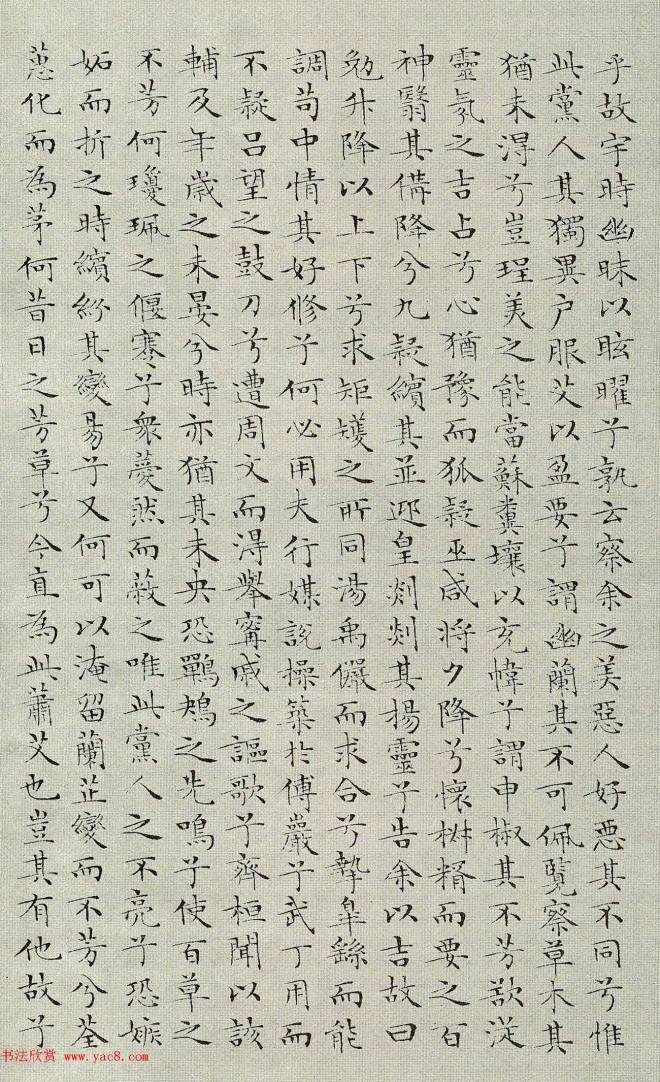 乎故宇時幽昧以眩曜兮孰云察余之美惡人好惡其不同兮惟
此黨人其獨異户服艾以盈要兮謂幽蘭其不可佩覽察草木其
猶未得兮豈珵美之能當蘇糞壤以充幃兮謂申椒其不芳欲從
靈氛之吉占兮心猶豫而狐疑巫咸將夕降兮懷椒糈而要之百
神翳其備降兮九疑繽其並迎皇剡剡其揚靈兮告余以吉故曰
勉升降以上下兮求矩矱之所同湯禹儼而求合兮摯皋繇而能
調苟中情其好修兮何必用夫行媒說操築於傅巖兮武丁用而
不疑吕望之鼓刀兮遭周文而得舉甯戚之謳歌兮齊桓聞以該
輔及年歲之未晏兮時亦猶其未央恐鶗鴂之先鳴兮使百草之
不芳何瓊珮之偃蹇兮衆薆然而蔽之唯此黨人之不亮兮恐嫉
妬而折之時繽紛其變易兮又何可以淹留蘭芷變而不芳兮荃
蕙化而為茅何昔日之芳草兮今直為此蕭艾也豈其有他故兮
书法欣赏 www.yac8.com